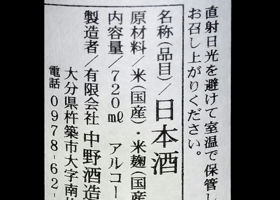 直射日光を避けて室温で保管し
お召し上がりください。
名称(品目)/日本酒
原材料/米(国産)・米麹(国産
内容量/720ml アルコー
製造者/有限会社 中野酒造
大分県杵築市大字南杵
電話 0978-62-